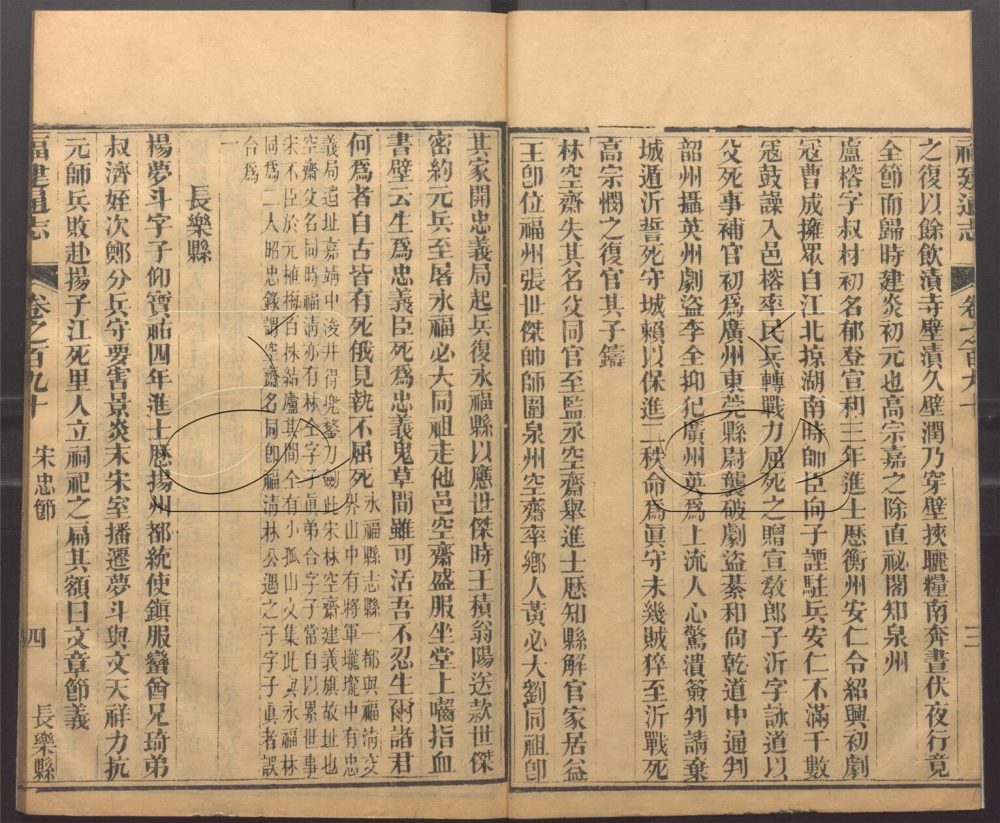 福建通志
卷之百九十
三
之復以餘飲漬寺壁漬久壁潤乃穿壁挾驪糧南奔晝伏夜行竟
全節而歸時建炎初元也高宗嘉之除直祕閣知泉州
盧榕字叔材初名郁登宣和三年進士歷衡州安仁令紹興初劇
寇曹成擁眾自江北掠湖南時帥臣向子諲駐兵安仁不滿千數
寇鼓譟入邑榕率民兵轉戰力屈死之贈宣教郎子沂字詠道以
父死事補官初爲廣州東莞縣尉襲破劇盜綦和尙乾道中通判
韶州攝英州劇盜李全抑犯廣州英爲上流人心驚潰簽判請棄
城遁沂誓死守城賴以保進二秩命爲眞守未幾賊猝至沂戰死
高宗憫之復官其子鑄
林空齋失其名父同官至監丞空齋舉進士歷知縣解官家居益
王卽位福州張世傑帥師圍泉州空齋率鄉人黃必大劉同祖卽
其家開忠義局起兵復永福縣以應世傑時王積翁陽送款世傑
密約元兵至屠永福必大同祖走他邑空齋盛服坐堂上嚙指血
書壁云生爲忠義臣死爲忠義鬼草間雖可活吾不忍生爾諸君
何爲者自古皆有死俄見執不屈死
永福縣志縣一都與福清交
界山中有將軍壠壠中有忠
義局遺址嘉靖中浚井得兜鍪刀劒此宋林空齋建義旗故址也
空齋父名同時福清亦有林全字子眞弟合字子常自以累世事
宋不臣於元植梅百株結廬其間全有小孤山父集此與永福林
同爲二人昭忠錄謂空齋名同卽福清林公遇之子字子眞者誤
合爲
一
長樂縣
楊夢斗字子仰寶祐四年進士歷揚州都統使鎭服蠻酋兄琦弟
叔濟姪次鄭分兵守要害景炎末宋室播遷夢斗與文天祥力抗
元師兵敗赴揚子江死里人立祠祀之扁其額曰文章節義
福建通志
卷之百九十
宋忠節
四
長樂縣